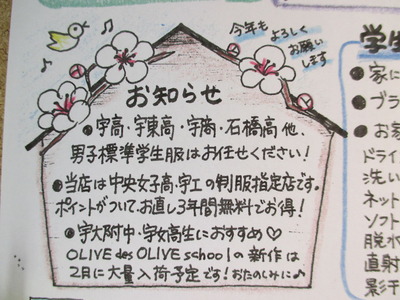 今年も
よろしく
お願い
します
お知らせ
●宇高・宇東高・宇商・石橋高 他、
男子標準学生服はお任せください！
●当店は中央女子高・宇工の制服指定店です。
ポイントがついて、お直し3年間無料でお得！
●宇大附中・宇女高生におすすめ♡
OLIVE des OLIVE schoolの新作は
2月に大量入荷予定です！おたのしみに♪
学生
●家に
●ブラ
●お家
ドライ
洗い
ネット
ソフト
脱水
直射
影干